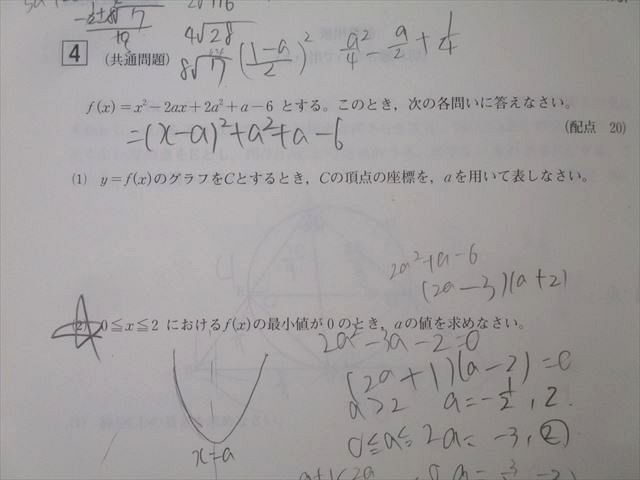 4√28
8√17 (1-a/2)² a²/4 - a/2 + 1/4
4 (共通問題)
f(x)=x²-2ax+2a²+a-6 とする。このとき，次の各問いに答えなさい。
=(x-a)²+a²+a-6
(配点 20)
(1) y=f(x)のグラフをCとするとき，Cの頂点の座標を，aを用いて表しなさい。
2a²+a-6
(2a-3)(a+2)
(2) 0≦x≦2 におけるf(x)の最小値が0のとき，aの値を求めなさい。
2a²-3a-2=0
(2a+1)(a-2)=0
a>2 a=-1/2, 2.
0≦a≦2 a=-3, ②
x=a